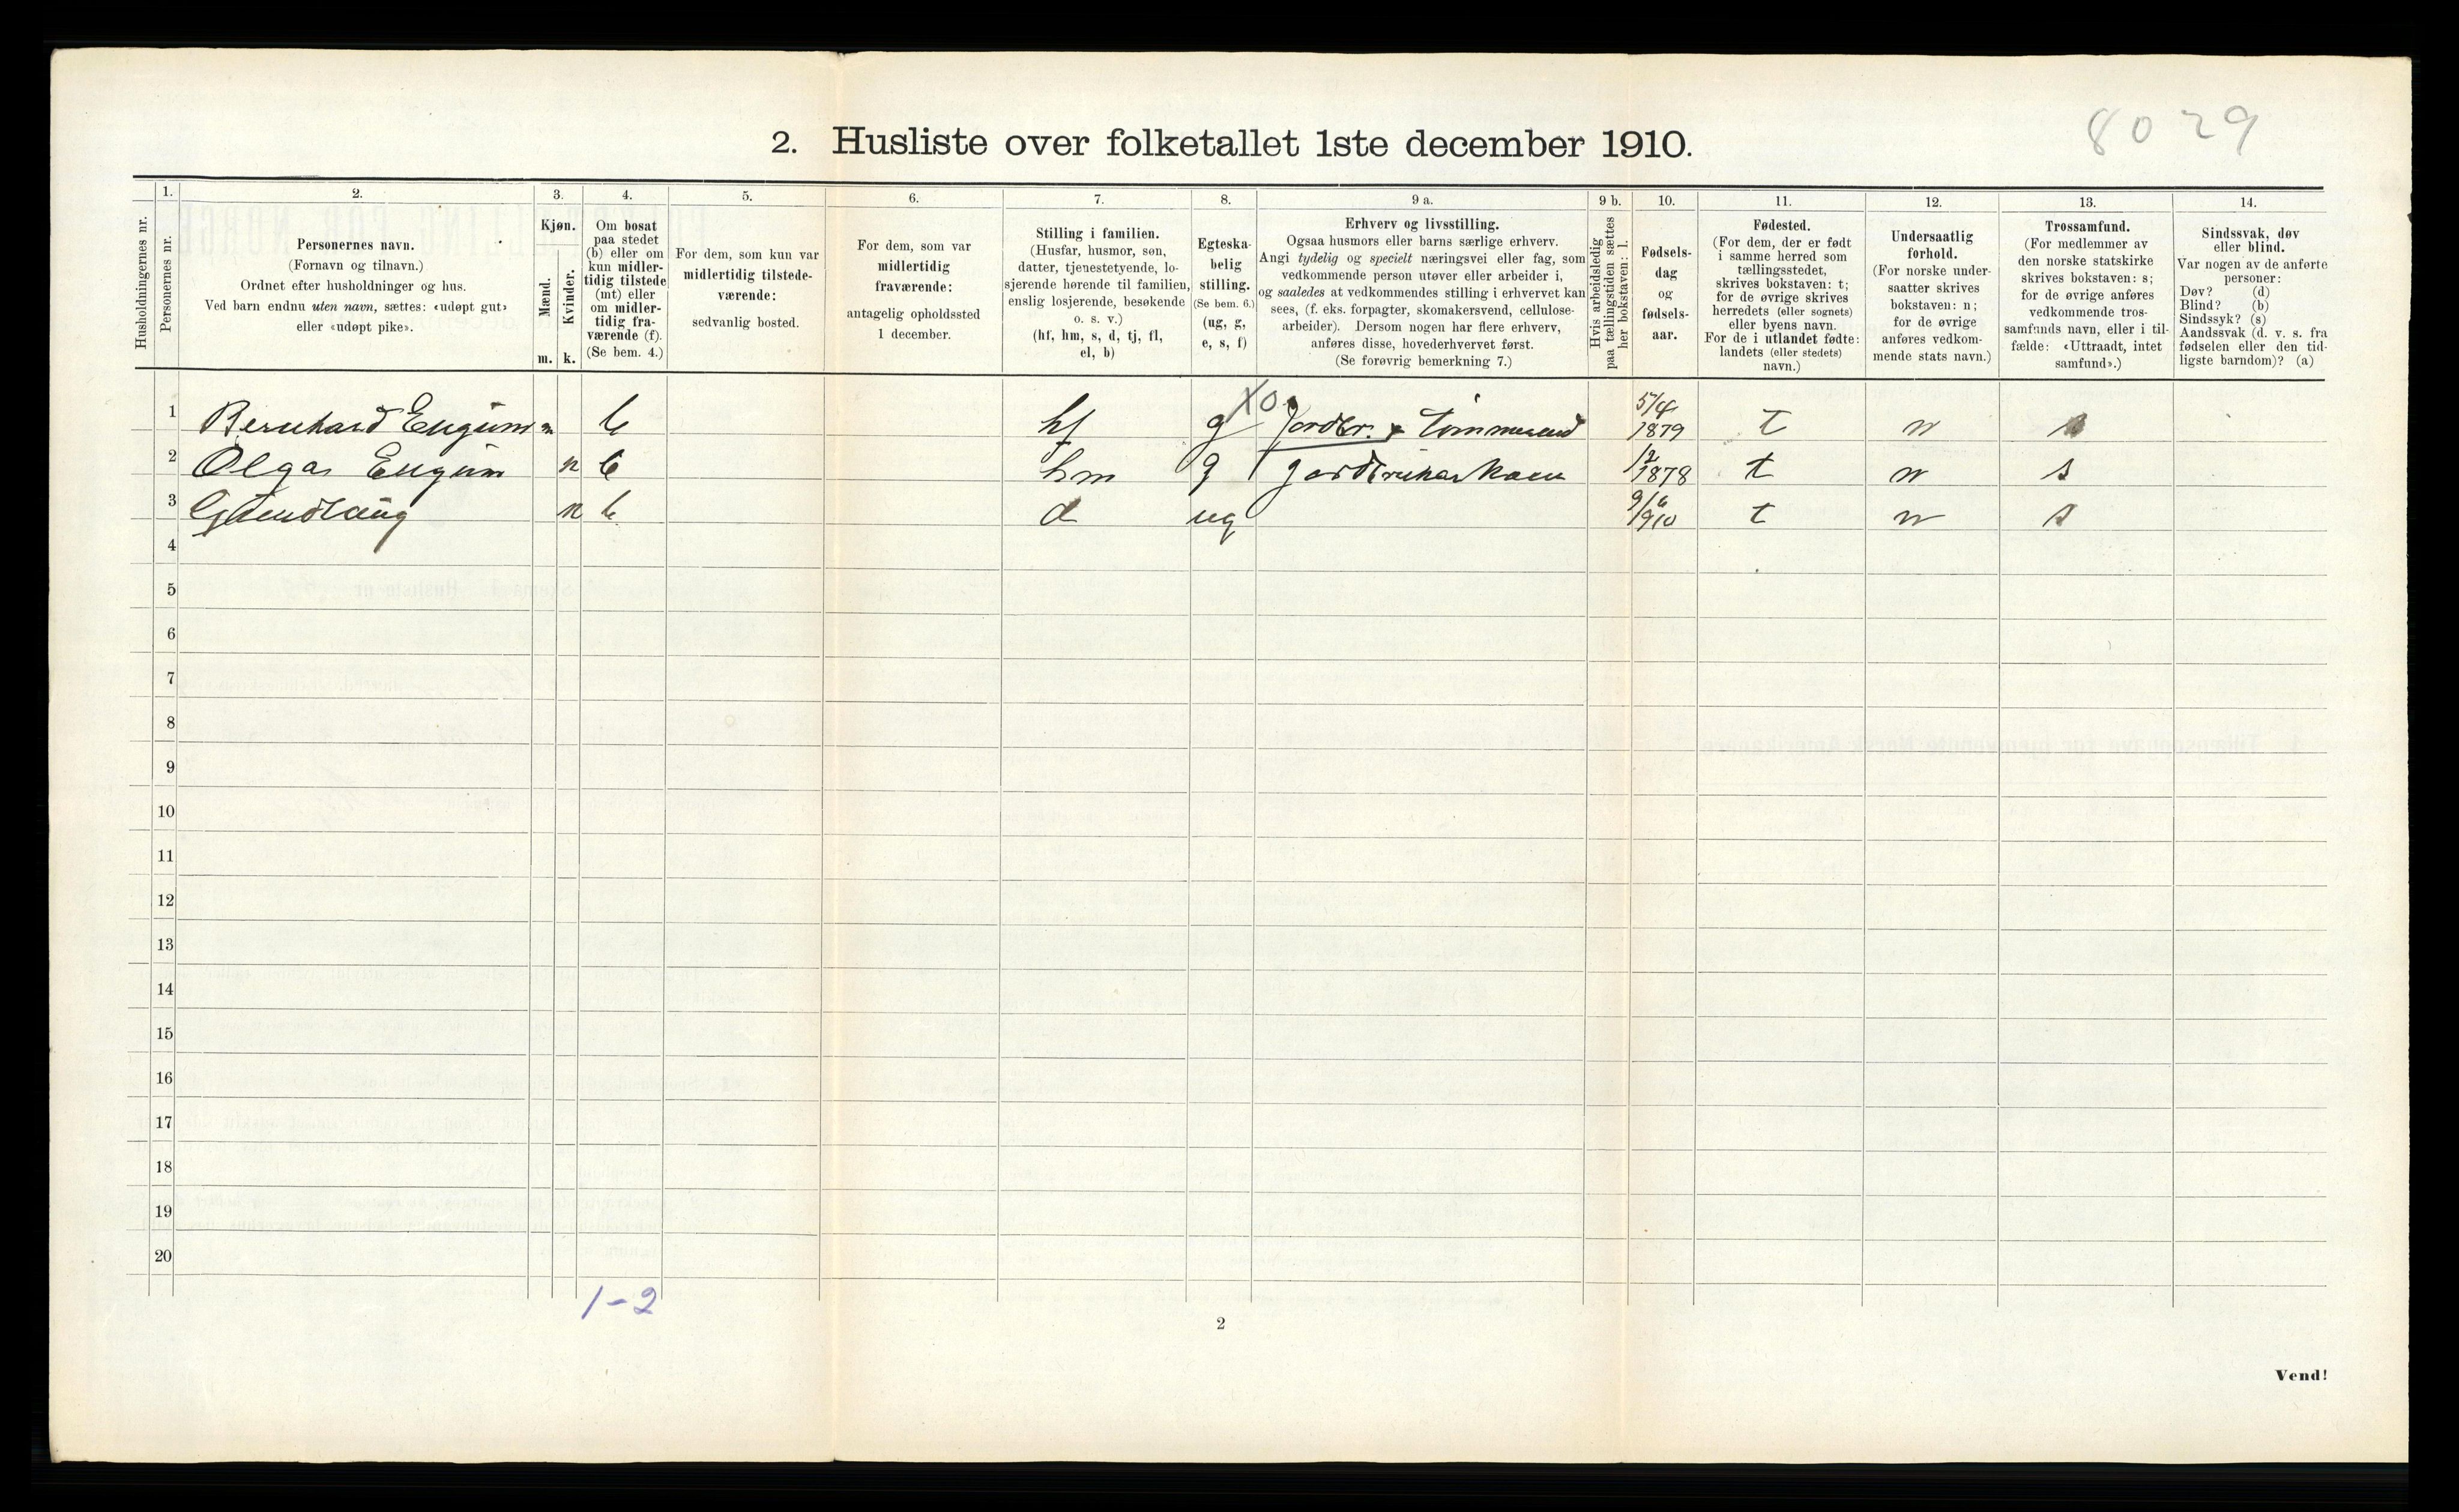 8029
2. Husliste over folketallet 1ste december 1910.
Husholdningernes nr.
1.
Personernes nr.
2.
Personernes navn.
(Fornavn og tilnavn.)
Ordnet efter husholdninger og hus.
Ved barn endnu uten navn, sættes: «udøpt gut»
eller «udøpt pike».
3.
Kjøn.
Mænd.
Kvinder.
m. k.
4.
Om bosat
paa stedet
(b) eller om
kun midler-
tidig tilstede
(mt) eller
om midler-
tidig fra-
værende (f).
(Se bem. 4.)
5.
For dem, som kun var
midlertidig tilstede-
værende:
sedvanlig bosted.
6.
For dem, som var
midlertidig
fraværende:
antagelig opholdssted
1 december.
7.
Stilling i familien.
(Husfar, husmor, søn,
datter, tjenestetyende, lo-
sjerende hørende til familien,
enslig losjerende, besøkende
o. s. v.)
(hf, hm, s, d, tj, fl,
el, b)
8.
Egteska-
belig
stilling.
(Se bem. 6.)
(ug, g,
e, s, f)
9 a.
Erhverv og livsstilling.
Ogsaa husmors eller barns særlige erhverv.
Angi tydelig og specielt næringsvei eller fag, som
vedkommende person utøver eller arbeider i,
og saaledes at vedkommendes stilling i erhvervet kan
sees, (f. eks. forpagter, skomakersvend, cellulose-
arbeider). Dersom nogen har flere erhverv,
anføres disse, hovederhvervet først.
(Se forøvrig bemerkning 7.)
9 b.
Hvis arbeidsledig
paa tællingstiden sættes
her bokstaven: l.
10.
Fødsels-
dag
og
fødsels-
aar.
11.
Fødested.
(For dem, der er født
i samme herred som
tællingsstedet,
skrives bokstaven: t;
for de øvrige skrives
herredets (eller sognets)
eller byens navn.
For de i utlandet fødte:
landets (eller stedets)
navn.)
12.
Undersaatlig
forhold.
(For norske under-
saatter skrives
bokstaven: n;
for de øvrige
anføres vedkom-
mende stats navn.)
13.
Trossamfund.
(For medlemmer av
den norske statskirke
skrives bokstaven: s;
for de øvrige anføres
vedkommende tros-
samfunds navn, eller i til-
fælde: «Uttraadt, intet
samfund».)
14.
Sindssvak, døv
eller blind.
Var nogen av de anførte
personer:
Døv? (d)
Blind? (b)
Sindssyk? (s)
Aandssvak (d. v. s. fra
fødselen eller den tid-
ligste barndom)? (a)
X0
1 Bernhard Engum m b hf g Jordbr. & Tømmermand 5/4 1879 t n s
2 Olga Engum k b hm g 1/2 1878 t n s
3 k b d ug 9/6 1910 t n s
4
5
6
7
8
9
10
11
12
13
14
15
16
17
18
19
20
1-2
2
Vend!